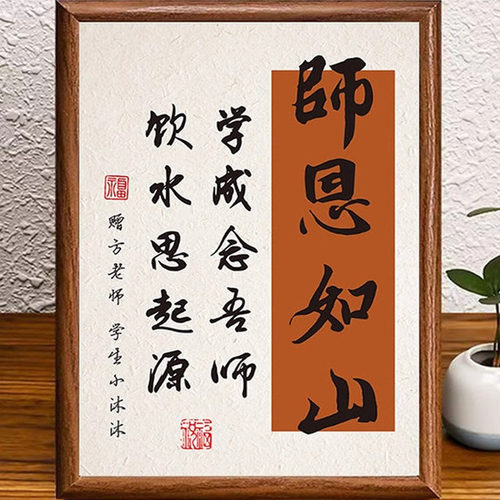 師恩如山
学成念吾师
饮水思起源
赠方老师 学生小沐沐
福